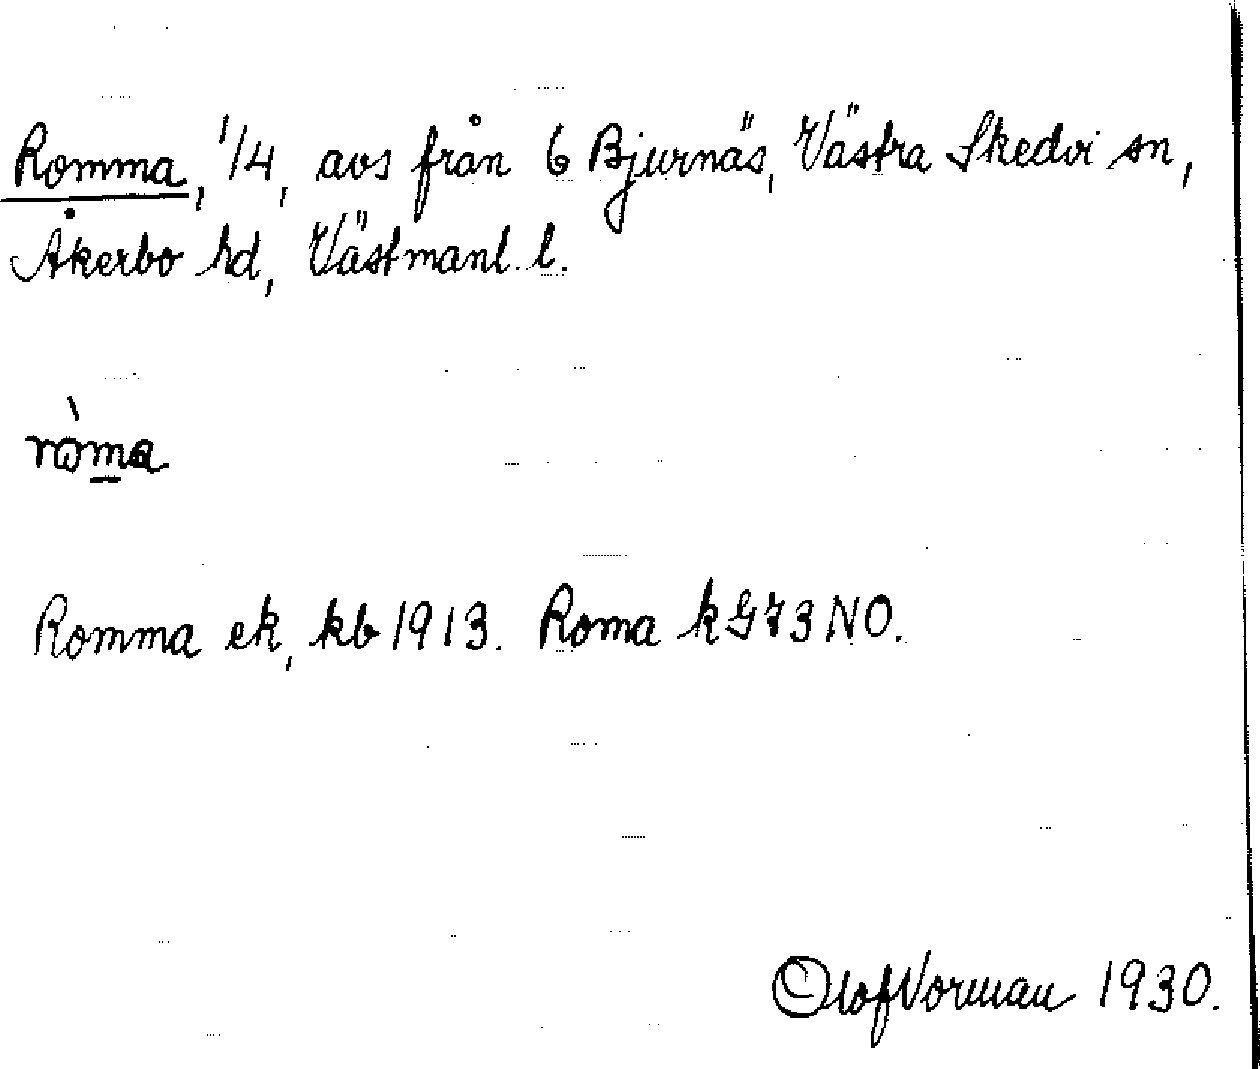 Romma, 1/4, avs från 6 Bjurnäs, Västra Skedvi sn,
Åkerbo hd, Västmanl. l.
ròma
Romma ek, kb 1913. Roma k G 73 NO.
Olof Vorman 1930.